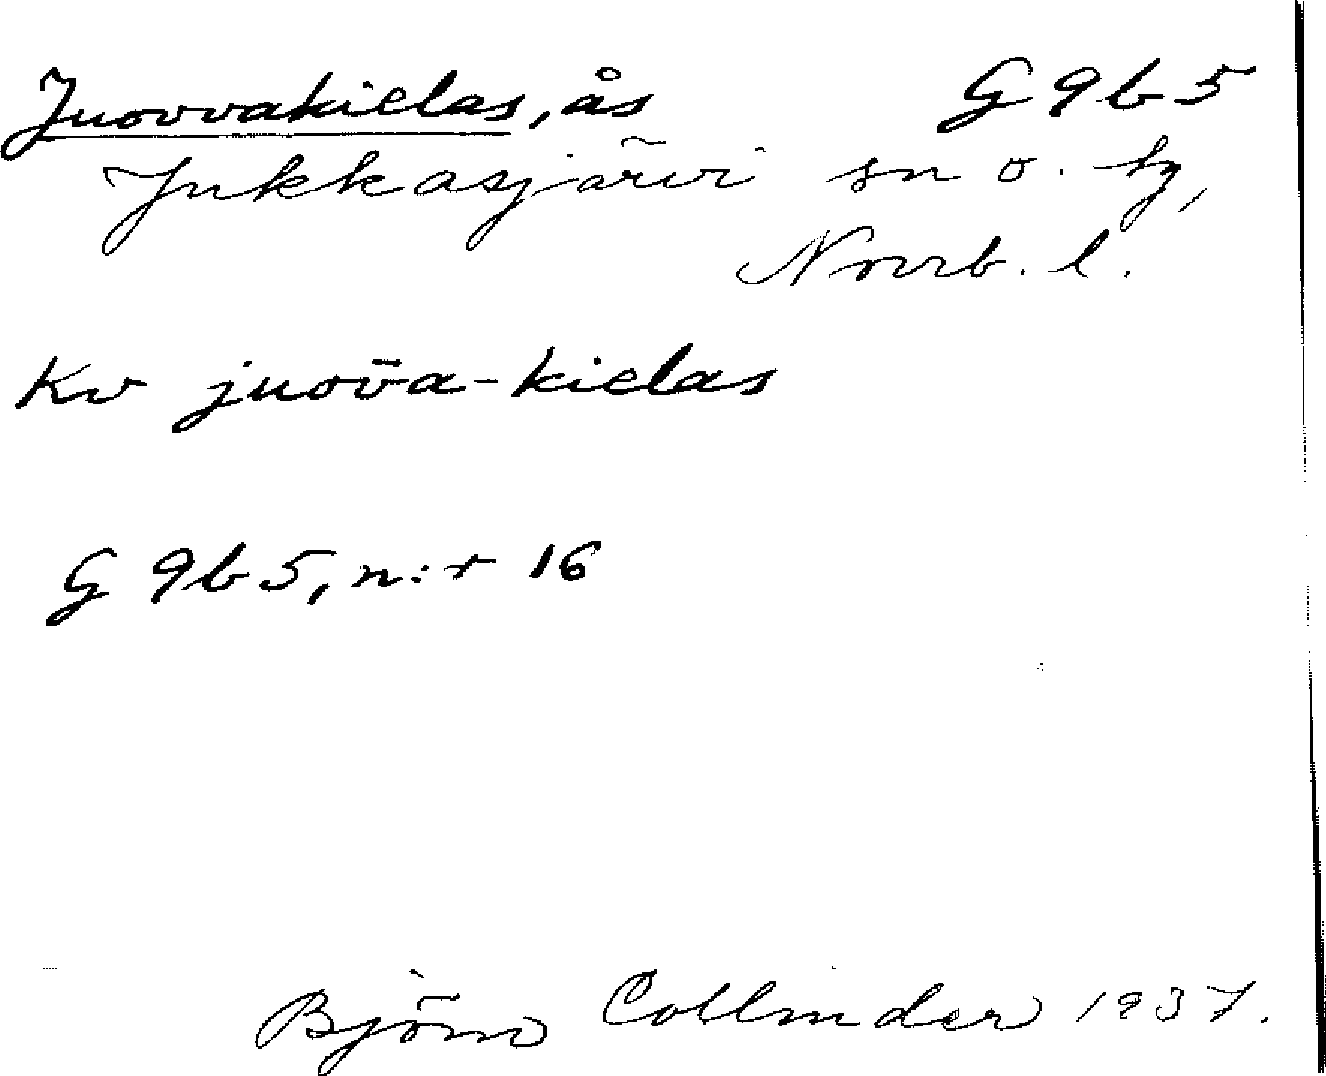 Juovvakielas, ås G 9 b 5
Jukkasjärvi sn o. tg,
Norrb. l.
Kv juov̄a-kielas
G 9 b 5, n:r 16
Björn Collinder 1937.